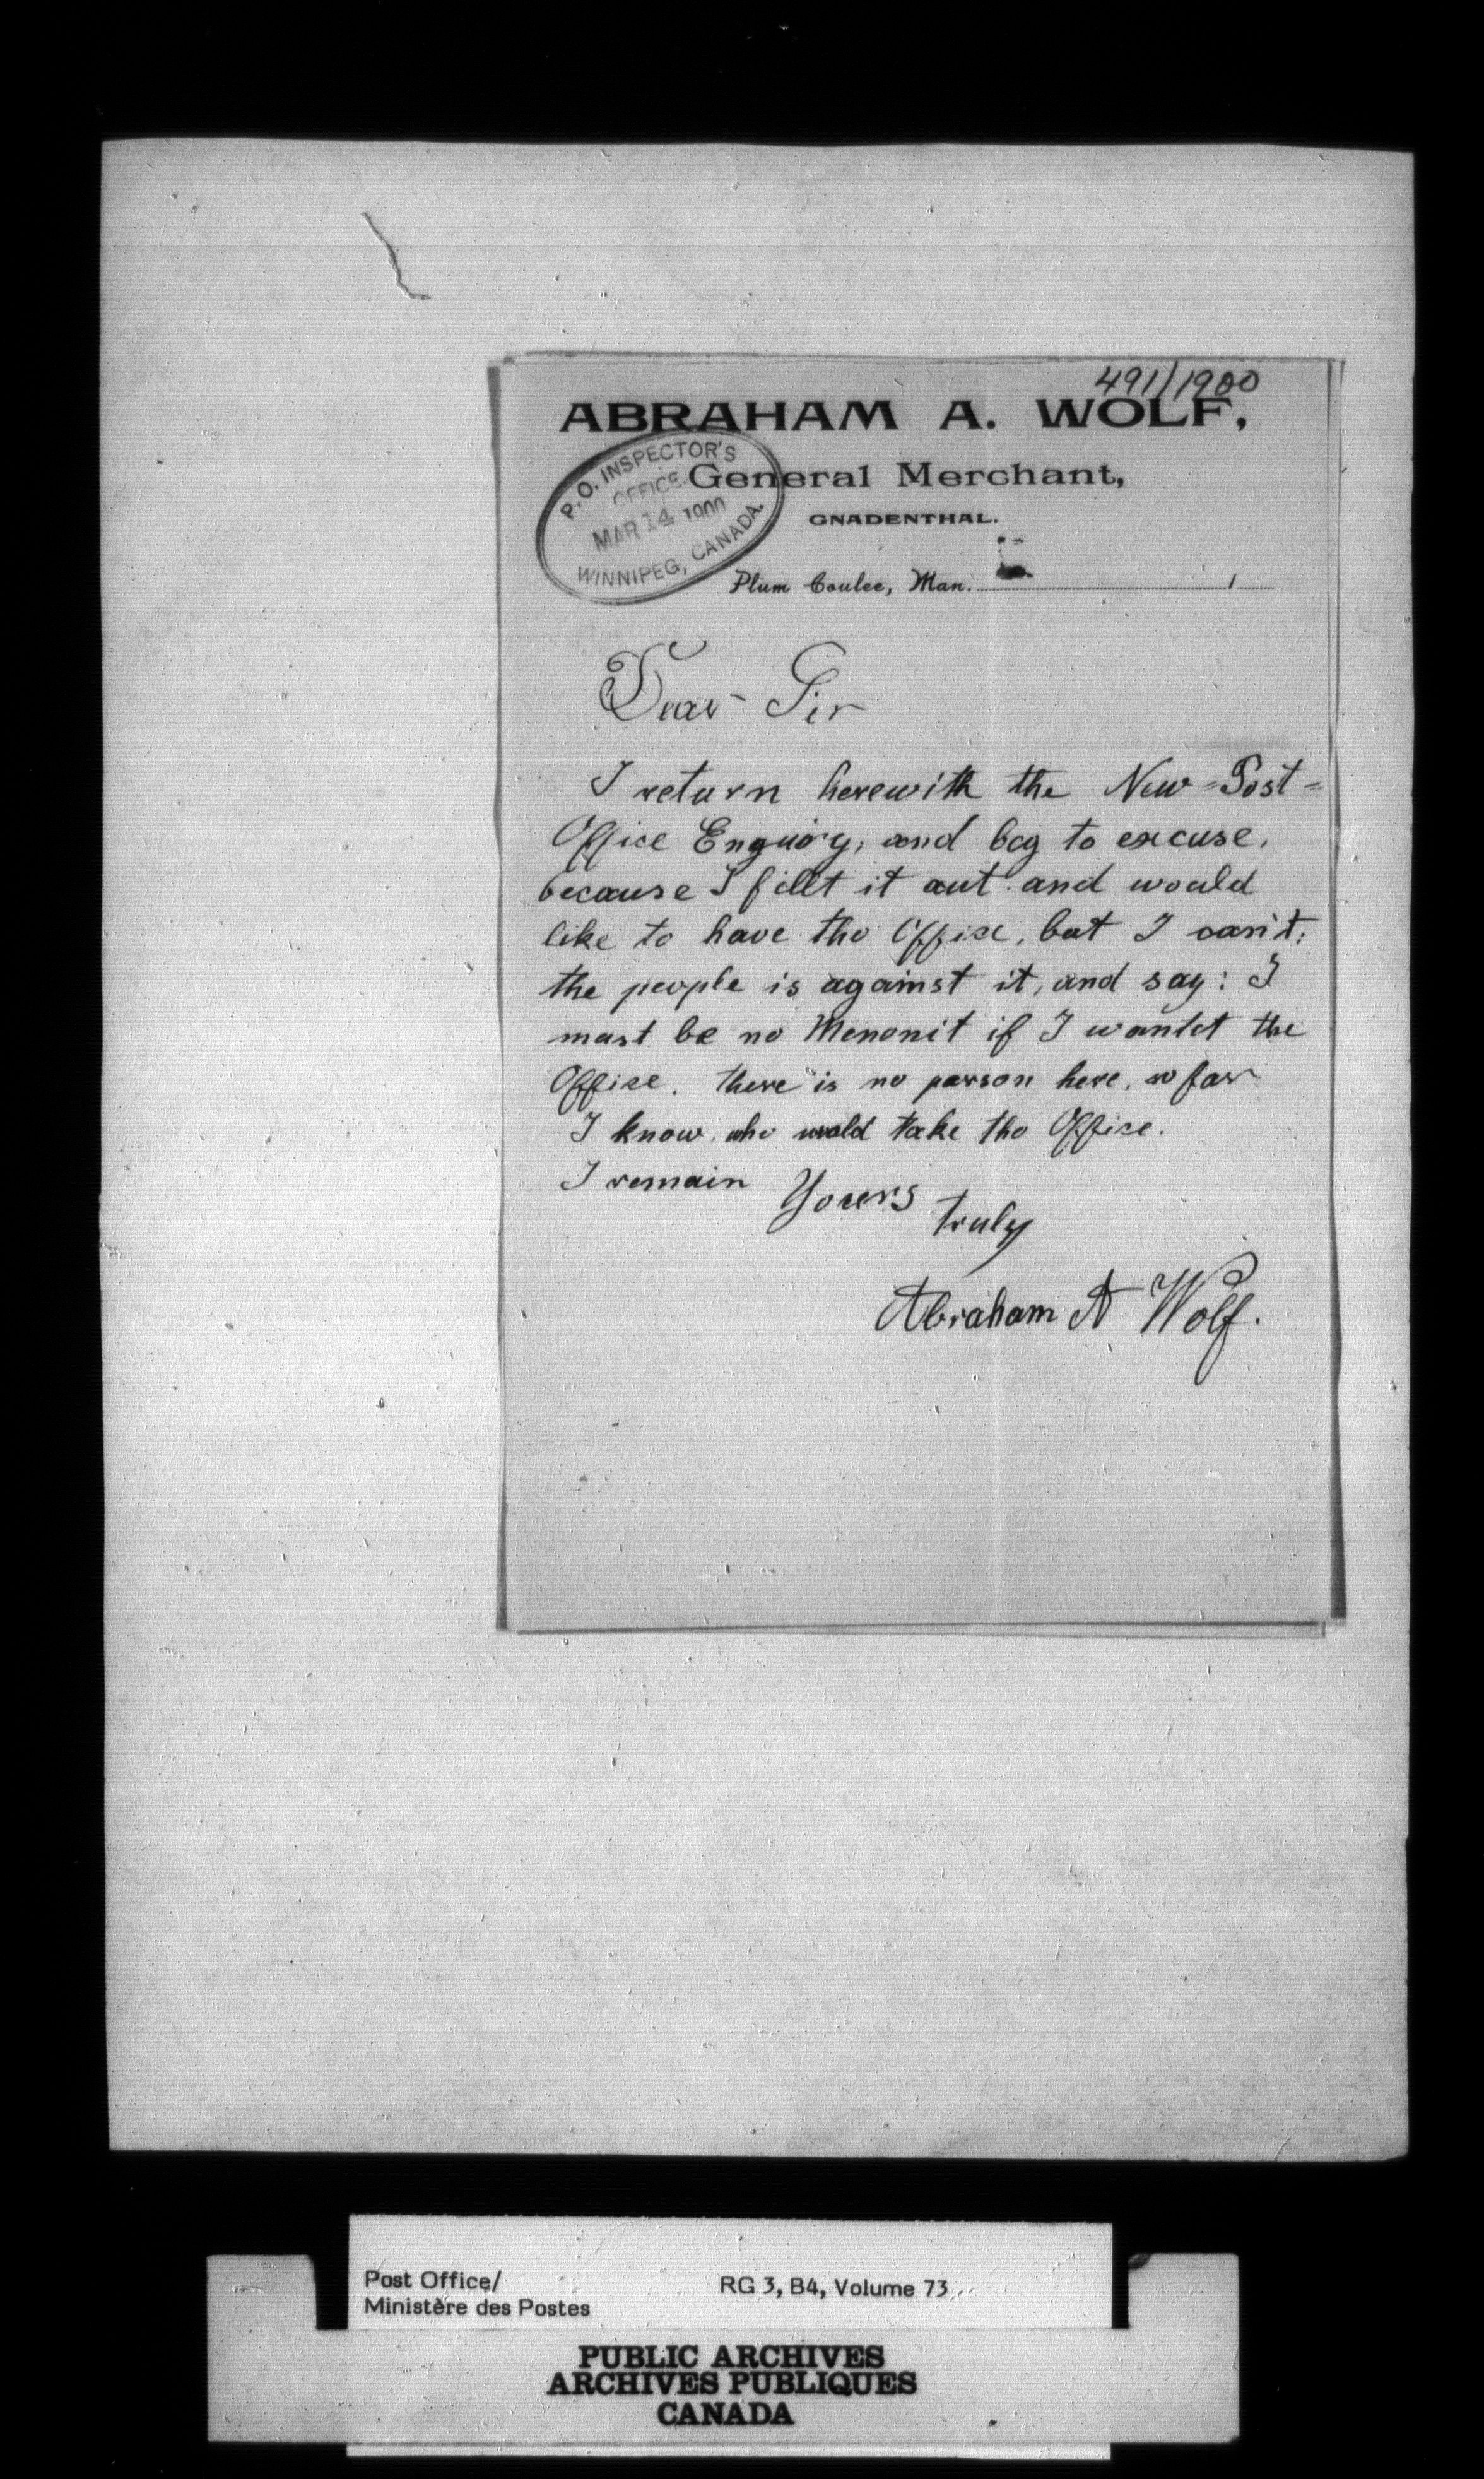 491/1900
ABRAHAM A. WOLF,
General Merchant,
GNADENTHAL.
P. O. INSPECTOR'S
OFFICE.
MAR 14 1900
WINNIPEG, CANADA.
Plum Coulee, Man. 1
Dear Sir
I return herewith the New=Post=
Office Enquiry, and beg to excuse,
because I fillt it aut and would
like to have the Office, but I can't;
the people is against it, and say: I
must be no Menonit if I wantet the
Office. there is no parson here, so far
I know, who would take the Office.
I remain Yours truly
Abraham A Wolf.
Post Office/
Ministère des Postes
RG 3, B4, Volume 73
PUBLIC ARCHIVES
ARCHIVES PUBLIQUES
CANADA